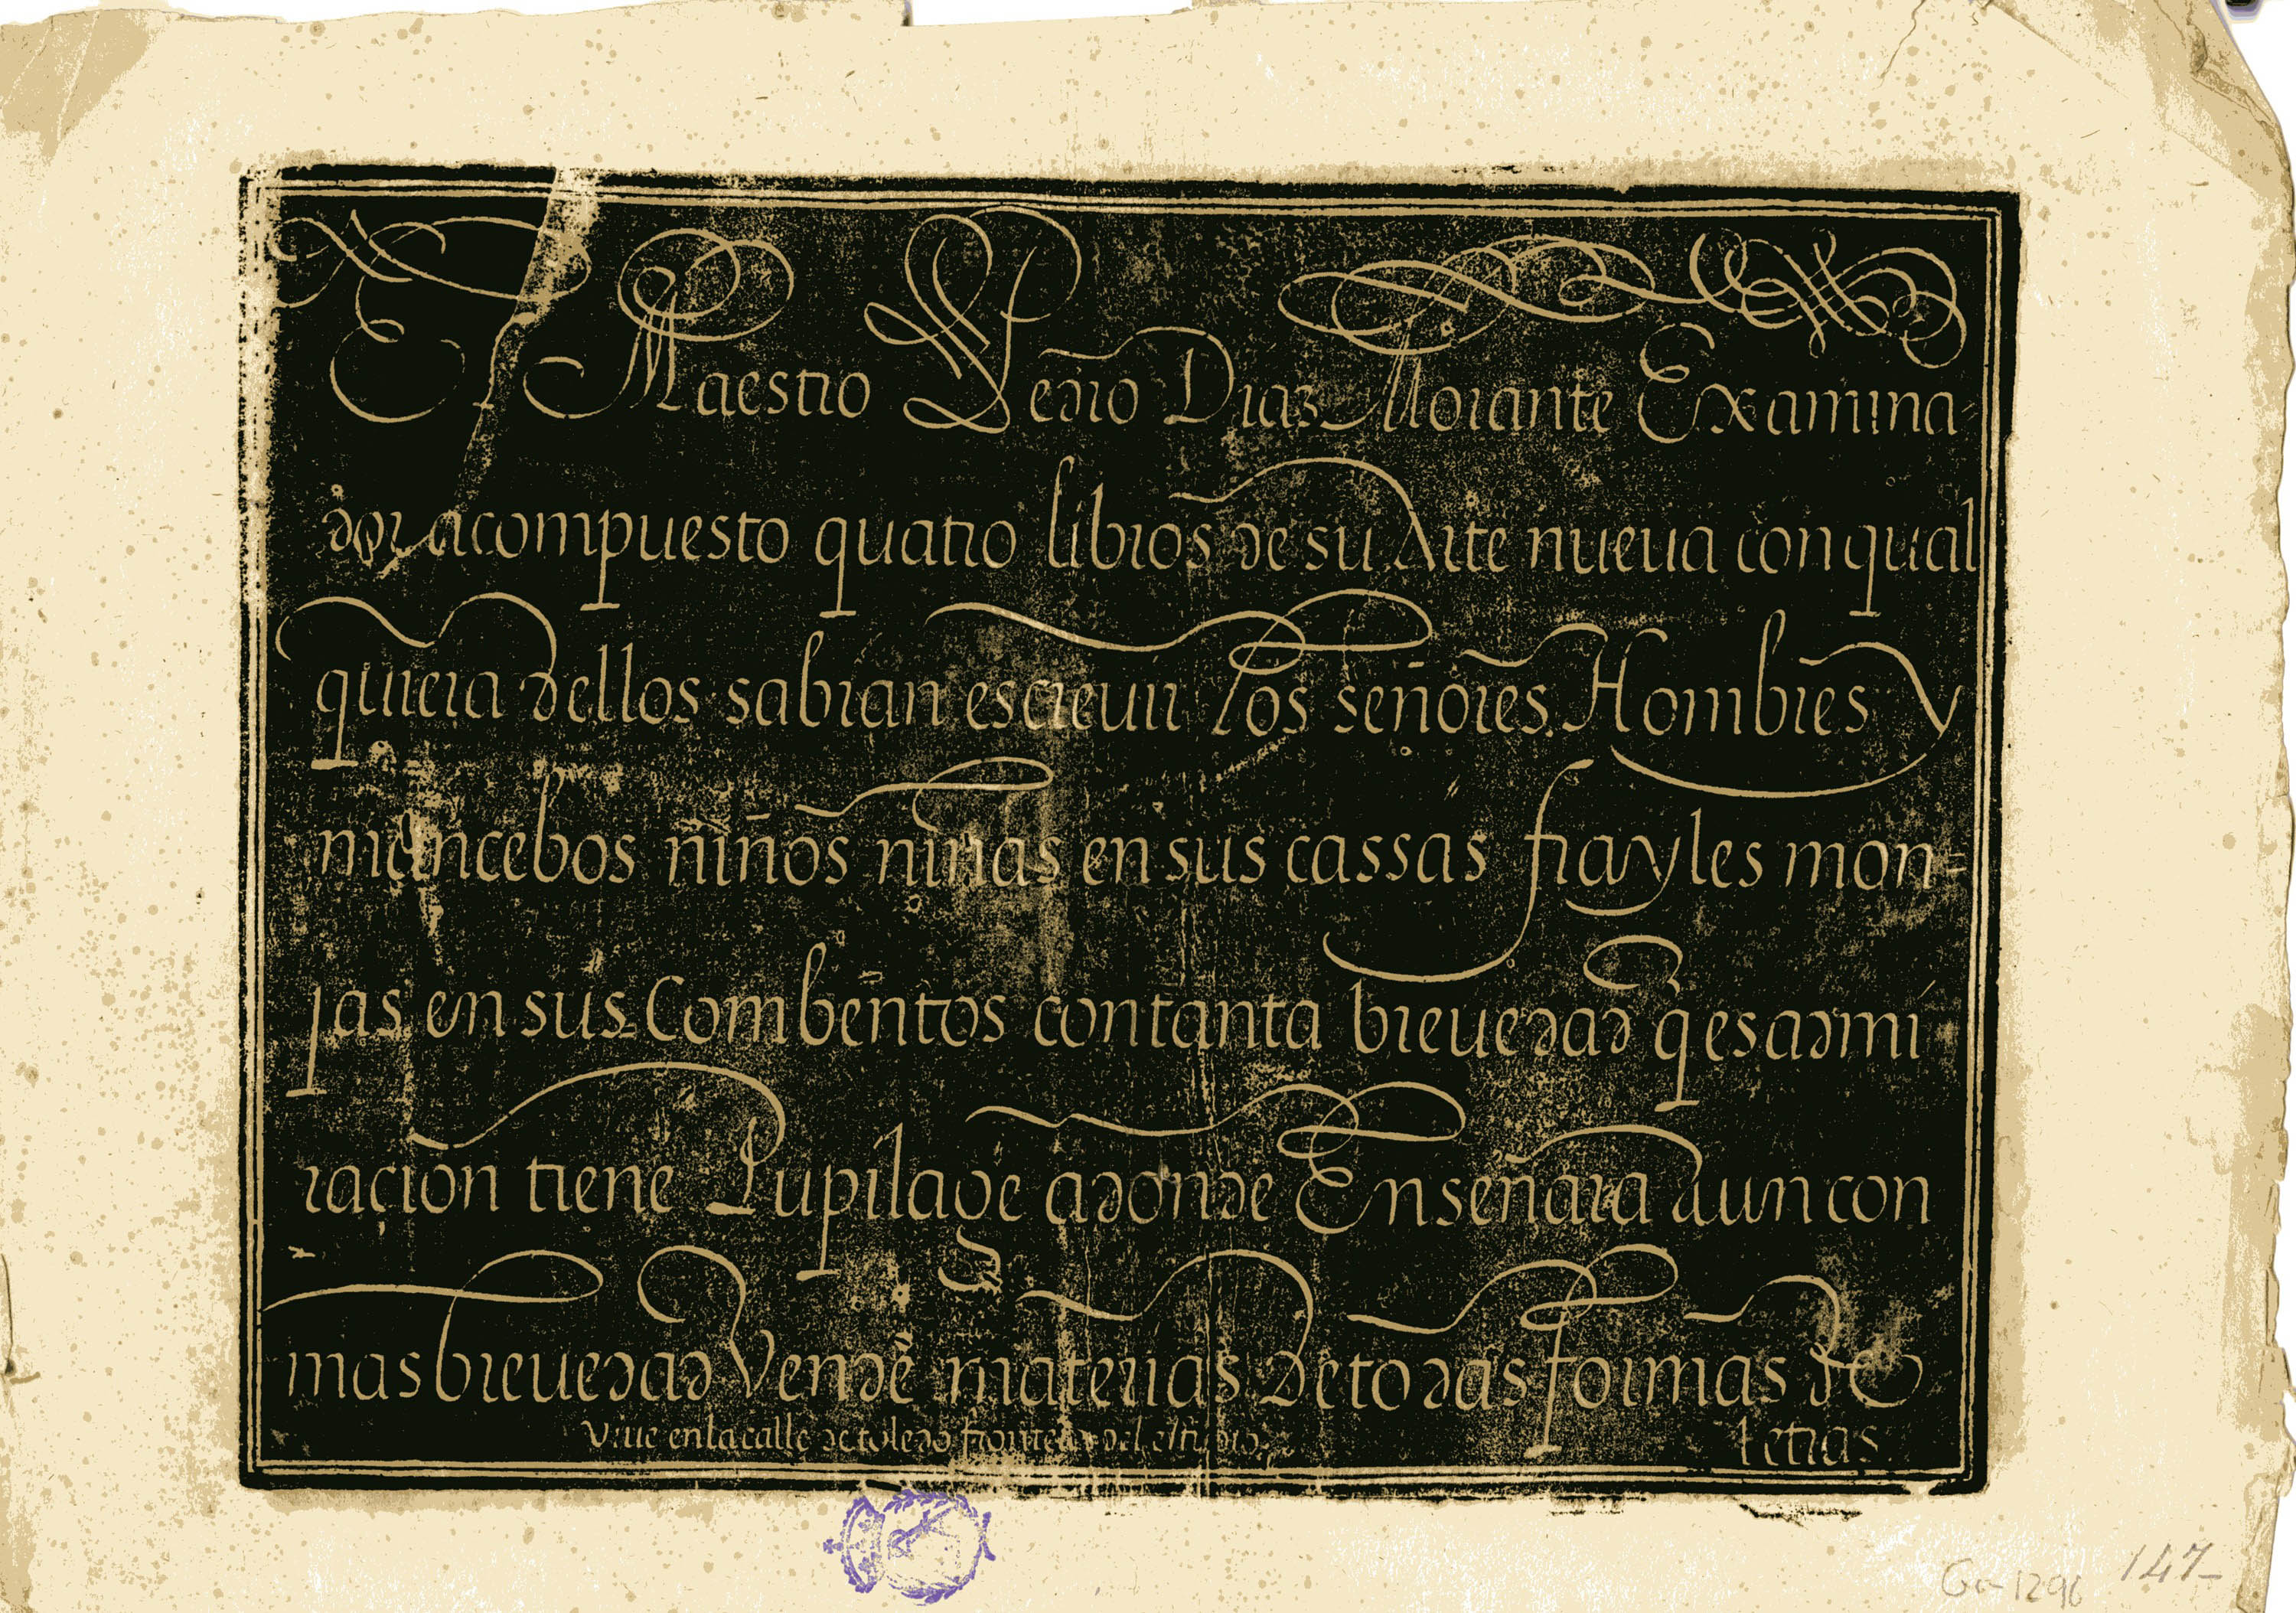 El Maestro Pedro Diaz Morante Examina-
dor acompuesto quatro libros de su Arte nueua con qual
quiera dellos sabran escreuir Los señores Hombres y
mancebos niños niñas en sus cassas frayles mon=
jas en sus Combentos con tanta breuedad q̃ es admi
raçion tiene Pupilage adonde Enseñara aun con
mas breuedad Vende materias de todas formas de
letras
Viue en la calle de toledo frontero del estudio
Gr-1296 147